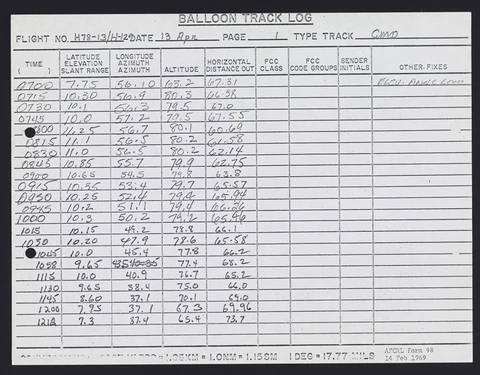 BALLOON TRACK LOG
FLIGHT NO. H78-13/H-129 DATE 13 Apr PAGE 1 TYPE TRACK GMD
TIME ( ) LATITUDE ELEVATION SLANT RANGE LONGITUDE AZIMUTH AZIMUTH ALTITUDE HORIZONTAL DISTANCE OUT FCC CLASS FCC CODE GROUPS SENDER INITIALS OTHER-FIXES
0700 7.75 56.10 67.31
0715 10.30 56.9 80.3 66.58
0730 10.1 56.3 79.5 67.0
0745 10.0 57.2 79.5 67.55
0800 11.25 56.7 80.1 60.69
0815 11.0 56.5 80.2 61.58
0830 11.0 56.5 80.2 62.14
0845 10.85 55.7 79.9 62.75
0900 10.65 54.5 79.8 63.8
0915 10.35 53.4 79.7 65.57
0930 10.25 52.4 79.4 65.94
0945 10.2 51.1 79.4 66.26
1000 10.3 50.2 79.2 65.46
1015 10.15 49.2 78.8 66.1
1030 10.20 47.9 78.6 65.58
1045 10.0 45.4 77.8 66.2
1058 9.65 77.4 68.2
1115 10.0 40.9 76.7 65.2
1130 9.65 38.4 75.0 66.0
1145 8.60 37.1 70.1 69.0
1200 7.95 37.1 67.3 69.96
1212 7.3 37.4 65.4 73.7
= 1.85KM = 1.0NM = 1.15SM 1 DEG = 17.77 MILS
AFCRL Form 98
14 Feb 1969